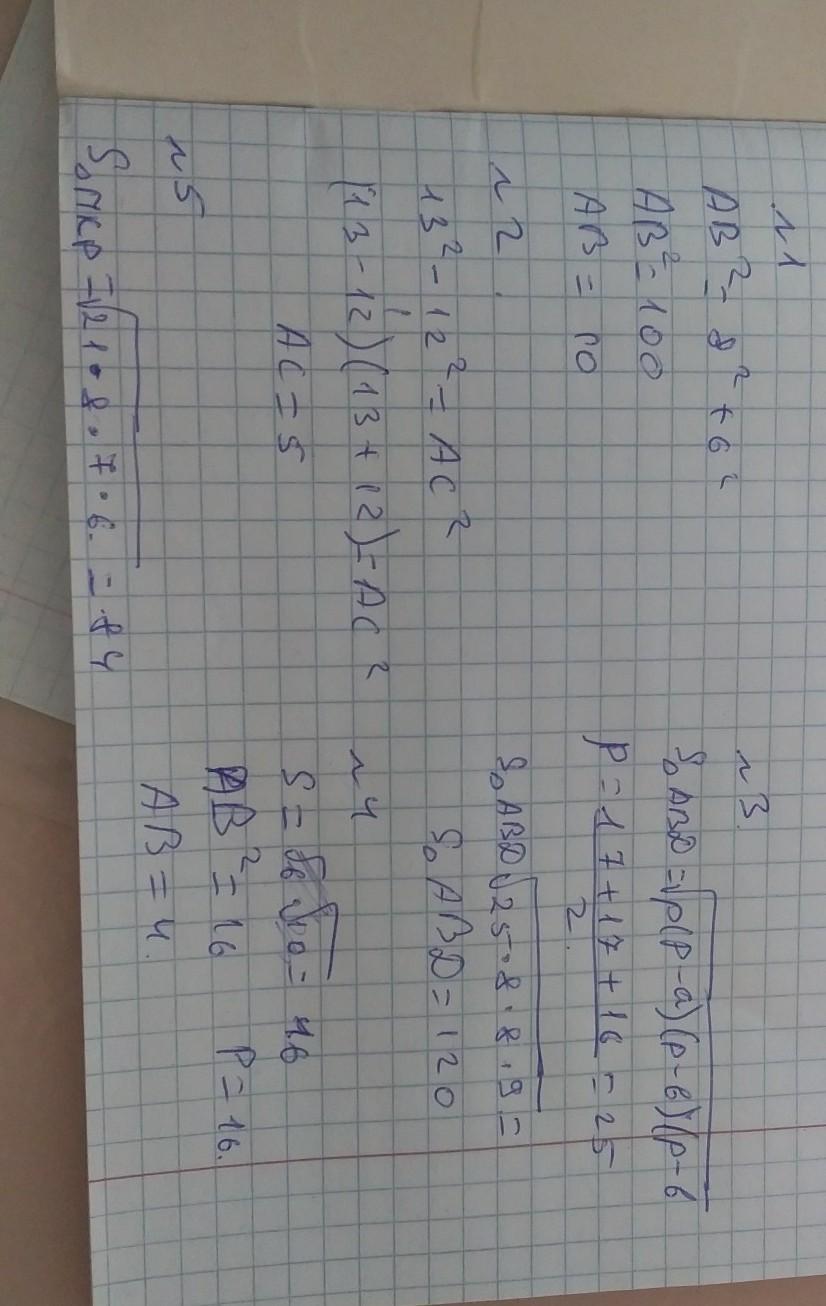 n1
AB² = 8² + 6²
AB² = 100
AB = 10
n2.
13² - 12² = AC²
(13 - 12)(13 + 12) = AC²
AC = 5
n5
S△ПКР = √21 • 8 • 7 • 6. = 84
n3.
S△ABD = √p(p-a)(p-в)(p-в
P = 17 + 17 + 16 / 2. = 25
S△ABD √25 • 8 • 8 • 9 =
S△ABD = 120
n4
S = 16
AB² = 16 P = 16.
AB = 4.